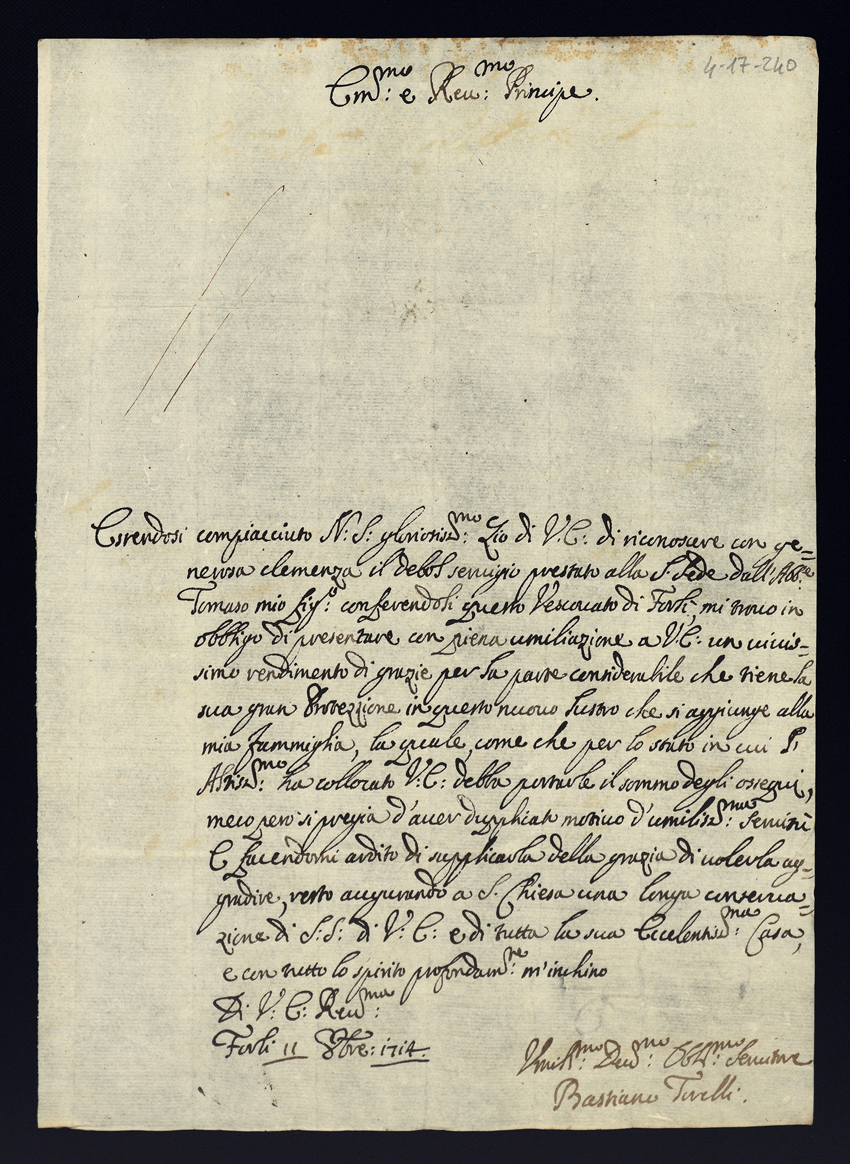 4-17-240
Em:mo e Reu:mo Principe.
Essendosi compiacciuto N: S: gloriosiss:mo Zio di V: E: di riconoscere con ge=
nerosa clemenza il debol servigio prestato alla S. Sede dall' Abb:e
Tomaso mio fig:o conferendoli questo Vescovato di Forlì, mi trovo in
obbligo di presentare con piena umiliazione a V: E: un viuis=
simo rendimento di grazie per la parte considerabile che tiene la
sua gran Protezzione in questo nuouo lustro che si aggiunge alla
mia fammiglia, la quale, come che per lo stato in cui l'
Altiss:mo ha collocato V: E: debba portarle il sommo degli ossequi,
meco pero si pregia d'auer dupplicato motiuo d'umiliss:ma seruitù
E facendomi ardito di supplicarla della grazia di uolerla ag=
gradire, resto augurando a S. Chiesa una longa conserua=
zione di S: S: di V: E: e di tutta la sua Eccelentiss:ma Casa,
e con tutto lo spirito profondam:te m'inchino
Di V: E: Reu:ma
Forlì 11 8bre: 1714.
Umil:mo Deu:mo Obbl:mo Seruitore
Bastiano Torelli.